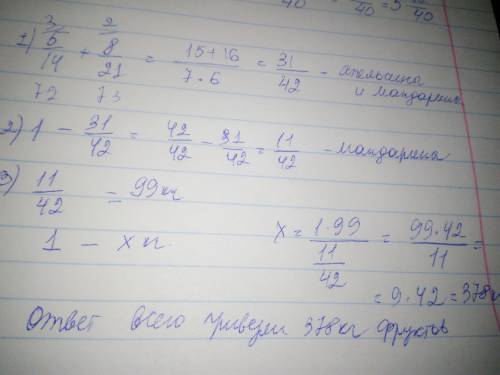 40 40 = 5 15/40
1) 5/14 (3) + 8/21 (2) = (15+16)/(7·6) = 31/42 - апельсина
72 73 и мандарина
2) 1 - 31/42 = 42/42 - 31/42 = 11/42 - мандарина
3) 11/42 = 99 кг
1 - x кг. x = (1·99)/(11/42) = (99·42)/11 =
= 9·42 = 378 к
Ответ всего привезли 378 кг фруктов